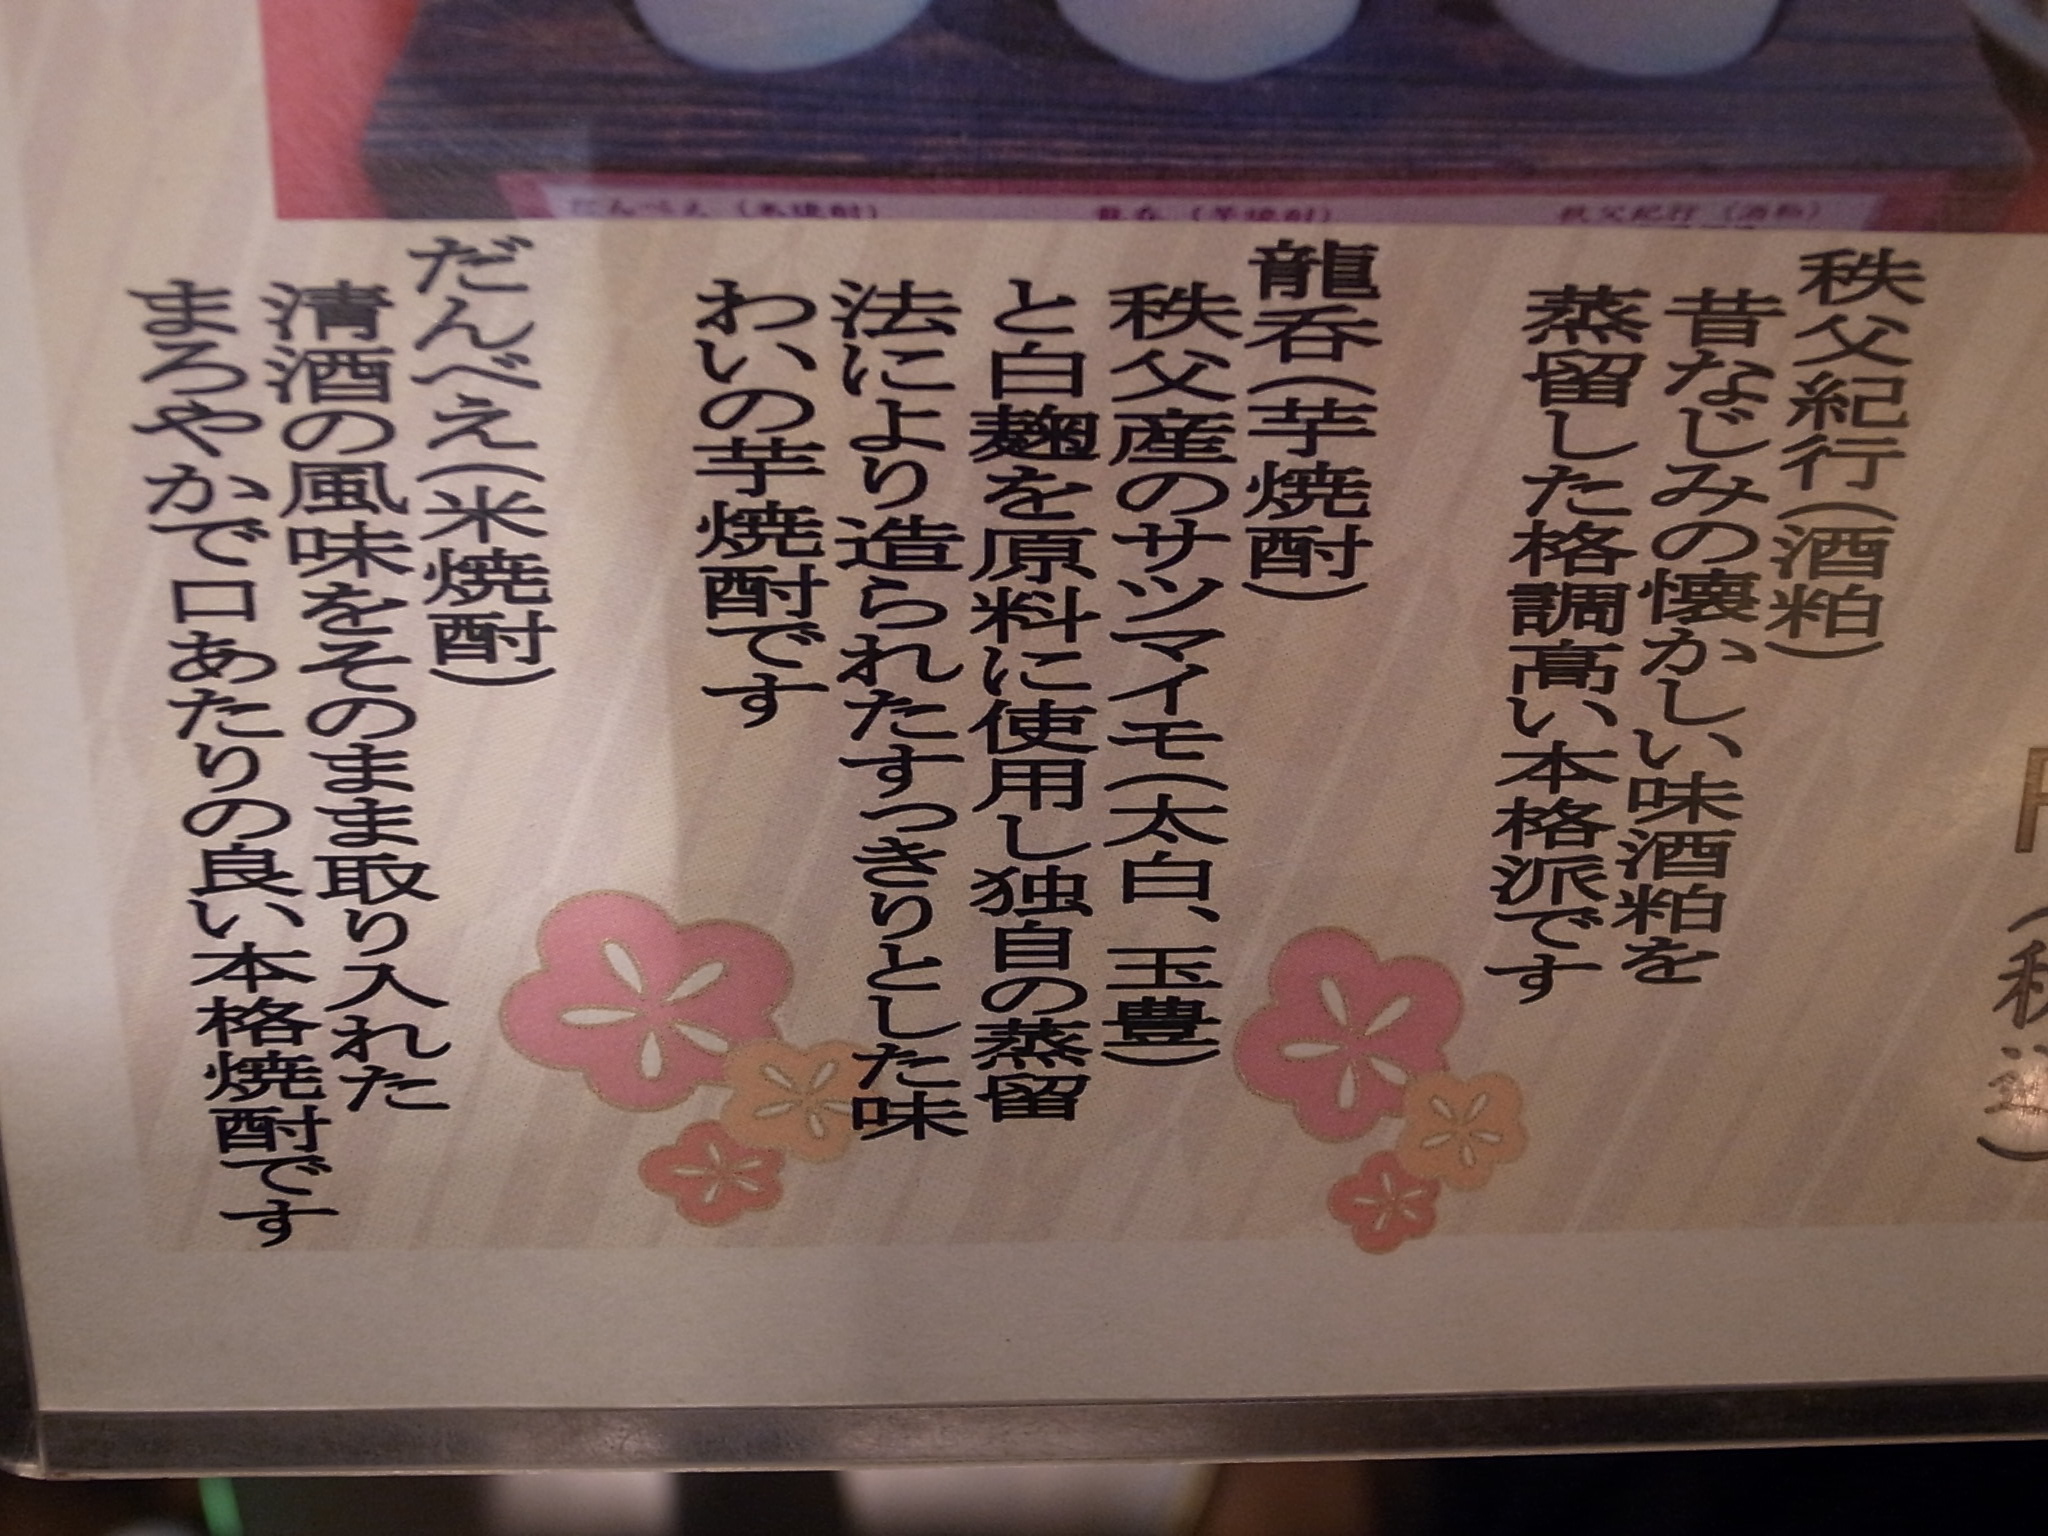 だんべえ(米焼酎)
龍呑(芋焼酎)
秩父紀行(酒粕)
秩父紀行(酒粕)
昔なじみの懐かしい味酒粕を
蒸留した格調高い本格派です
龍呑(芋焼酎)
秩父産のサツマイモ(太白、玉豊)
と白麹を原料に使用し独自の蒸留
法により造られたすっきりとした味
わいの芋焼酎です
だんべえ(米焼酎)
清酒の風味をそのまま取り入れた
まろやかで口あたりの良い本格焼酎です